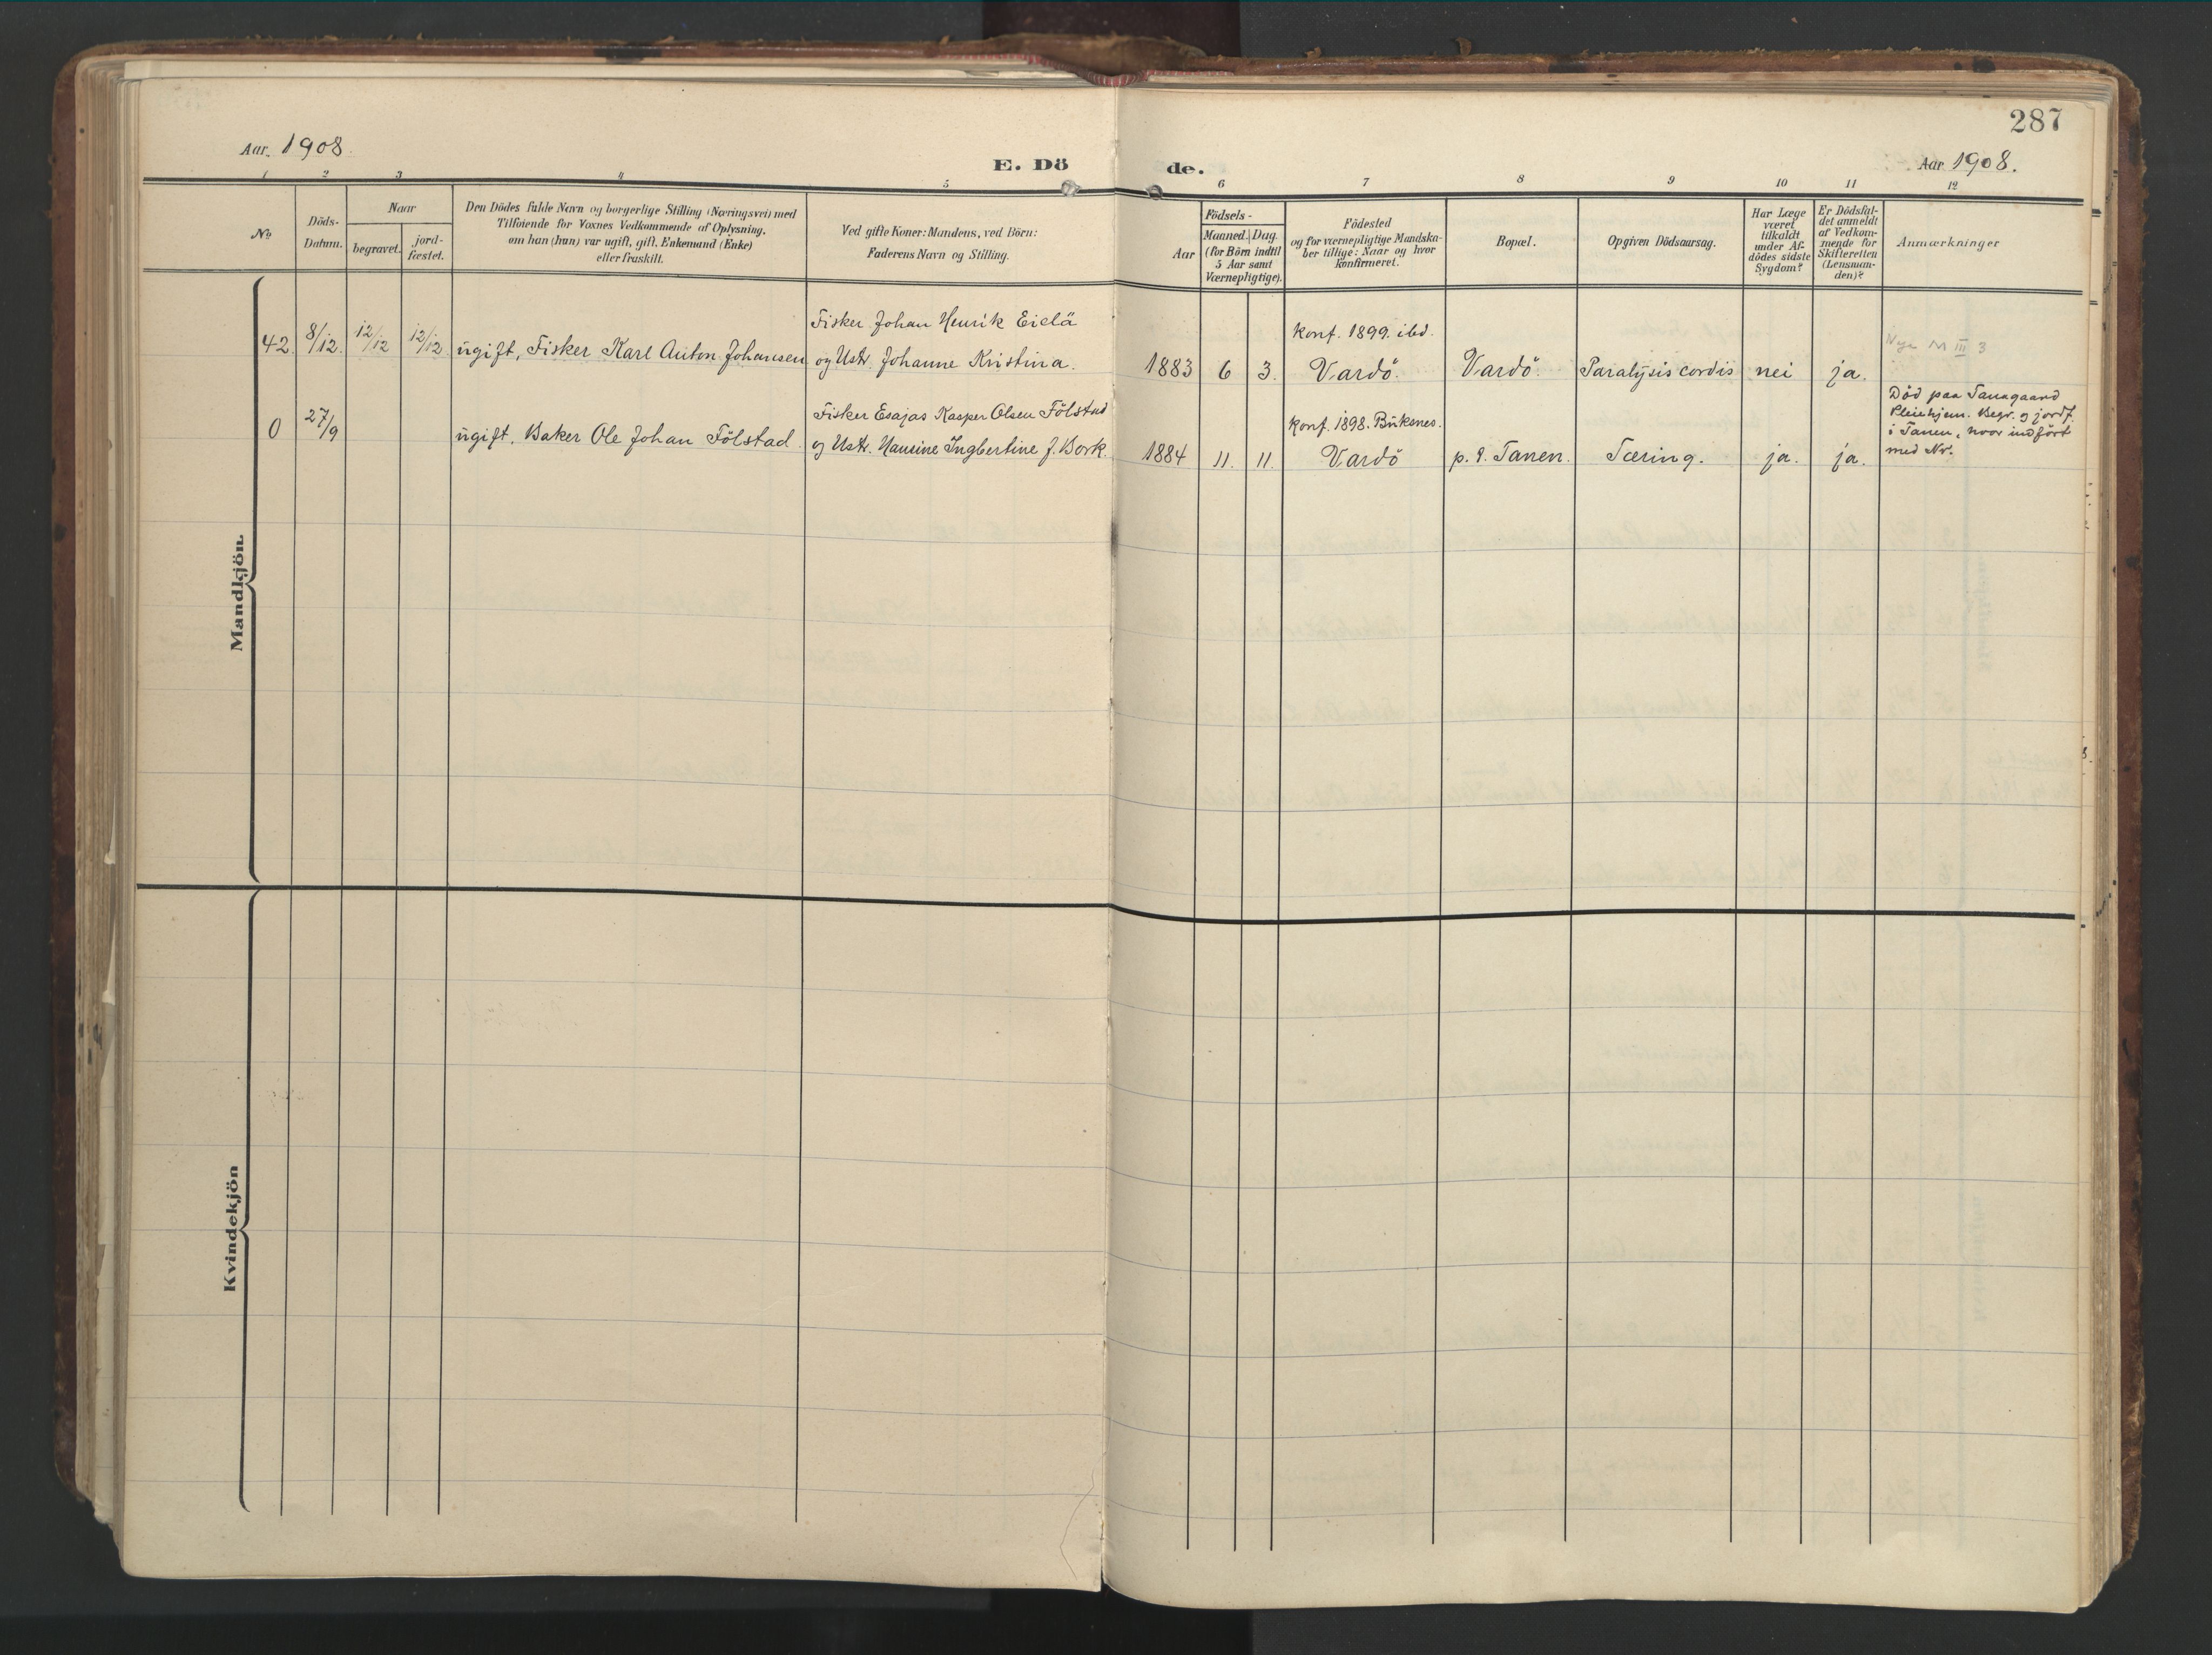 287
Aar. 1908.
E. Dö
de.
Aar 1908.
1 2 3 4 5 6 7 8 9 10 11 12
No
Döds-
Datum.
Naar
begravet.
jord-
fæstet.
Den Dödes fulde Navn og borgerlige Stilling (Næringsvei) med
Tilföiende for Voxnes Vedkommende af Oplysning,
om han (hun) var ugift, gift, Enkemand (Enke)
eller fraskilt.
Ved gifte Koner: Mandens, ved Börn:
Faderens Navn og Stilling.
Födsels-
Aar
Maaned. Dag.
(for Börn indtil
5 Aar samt
Værnepligtige).
Födested
og for værnepligtige Mandska-
ber tillige: Naar og hvor
konfirmeret.
Bopæl.
Opgiven Dödsaarsag.
Har Læge
været
tilkaldt
under Af-
dödes sidste
Sygdom?
Er Dödsfal-
det anmeldt
af Vedkom-
mende for
Skifteretten
(Lensman-
den)?
Anmærkninger
Mandkjön.
42. 8/12. 12/12 12/12 ugift, Fisker Karl Anton Johansen
Fisker Johan Henrik Eielä
og Ustr. Johanne Kristina.
1883 6 3.
Konf. 1899. ibd.
Vardö. Vardö. Paralysis cordis nei ja.
M III 3
0 27/9 ugift. Baker Ole Johan Fölstad.
Fisker Esajas Kasper Olsen Fölstad
og Ustr. Hansine Ingbertine f. Bork.
1884 11. 11.
Konf. 1898. Buksnes.
Vardö p. t. Tanen. Tæring. ja. ja.
Död paa Tanagaard
Pleiehjem. Begr. og jordf.
i Tanen, hvor indfört
med Nr.
Kvindekjön